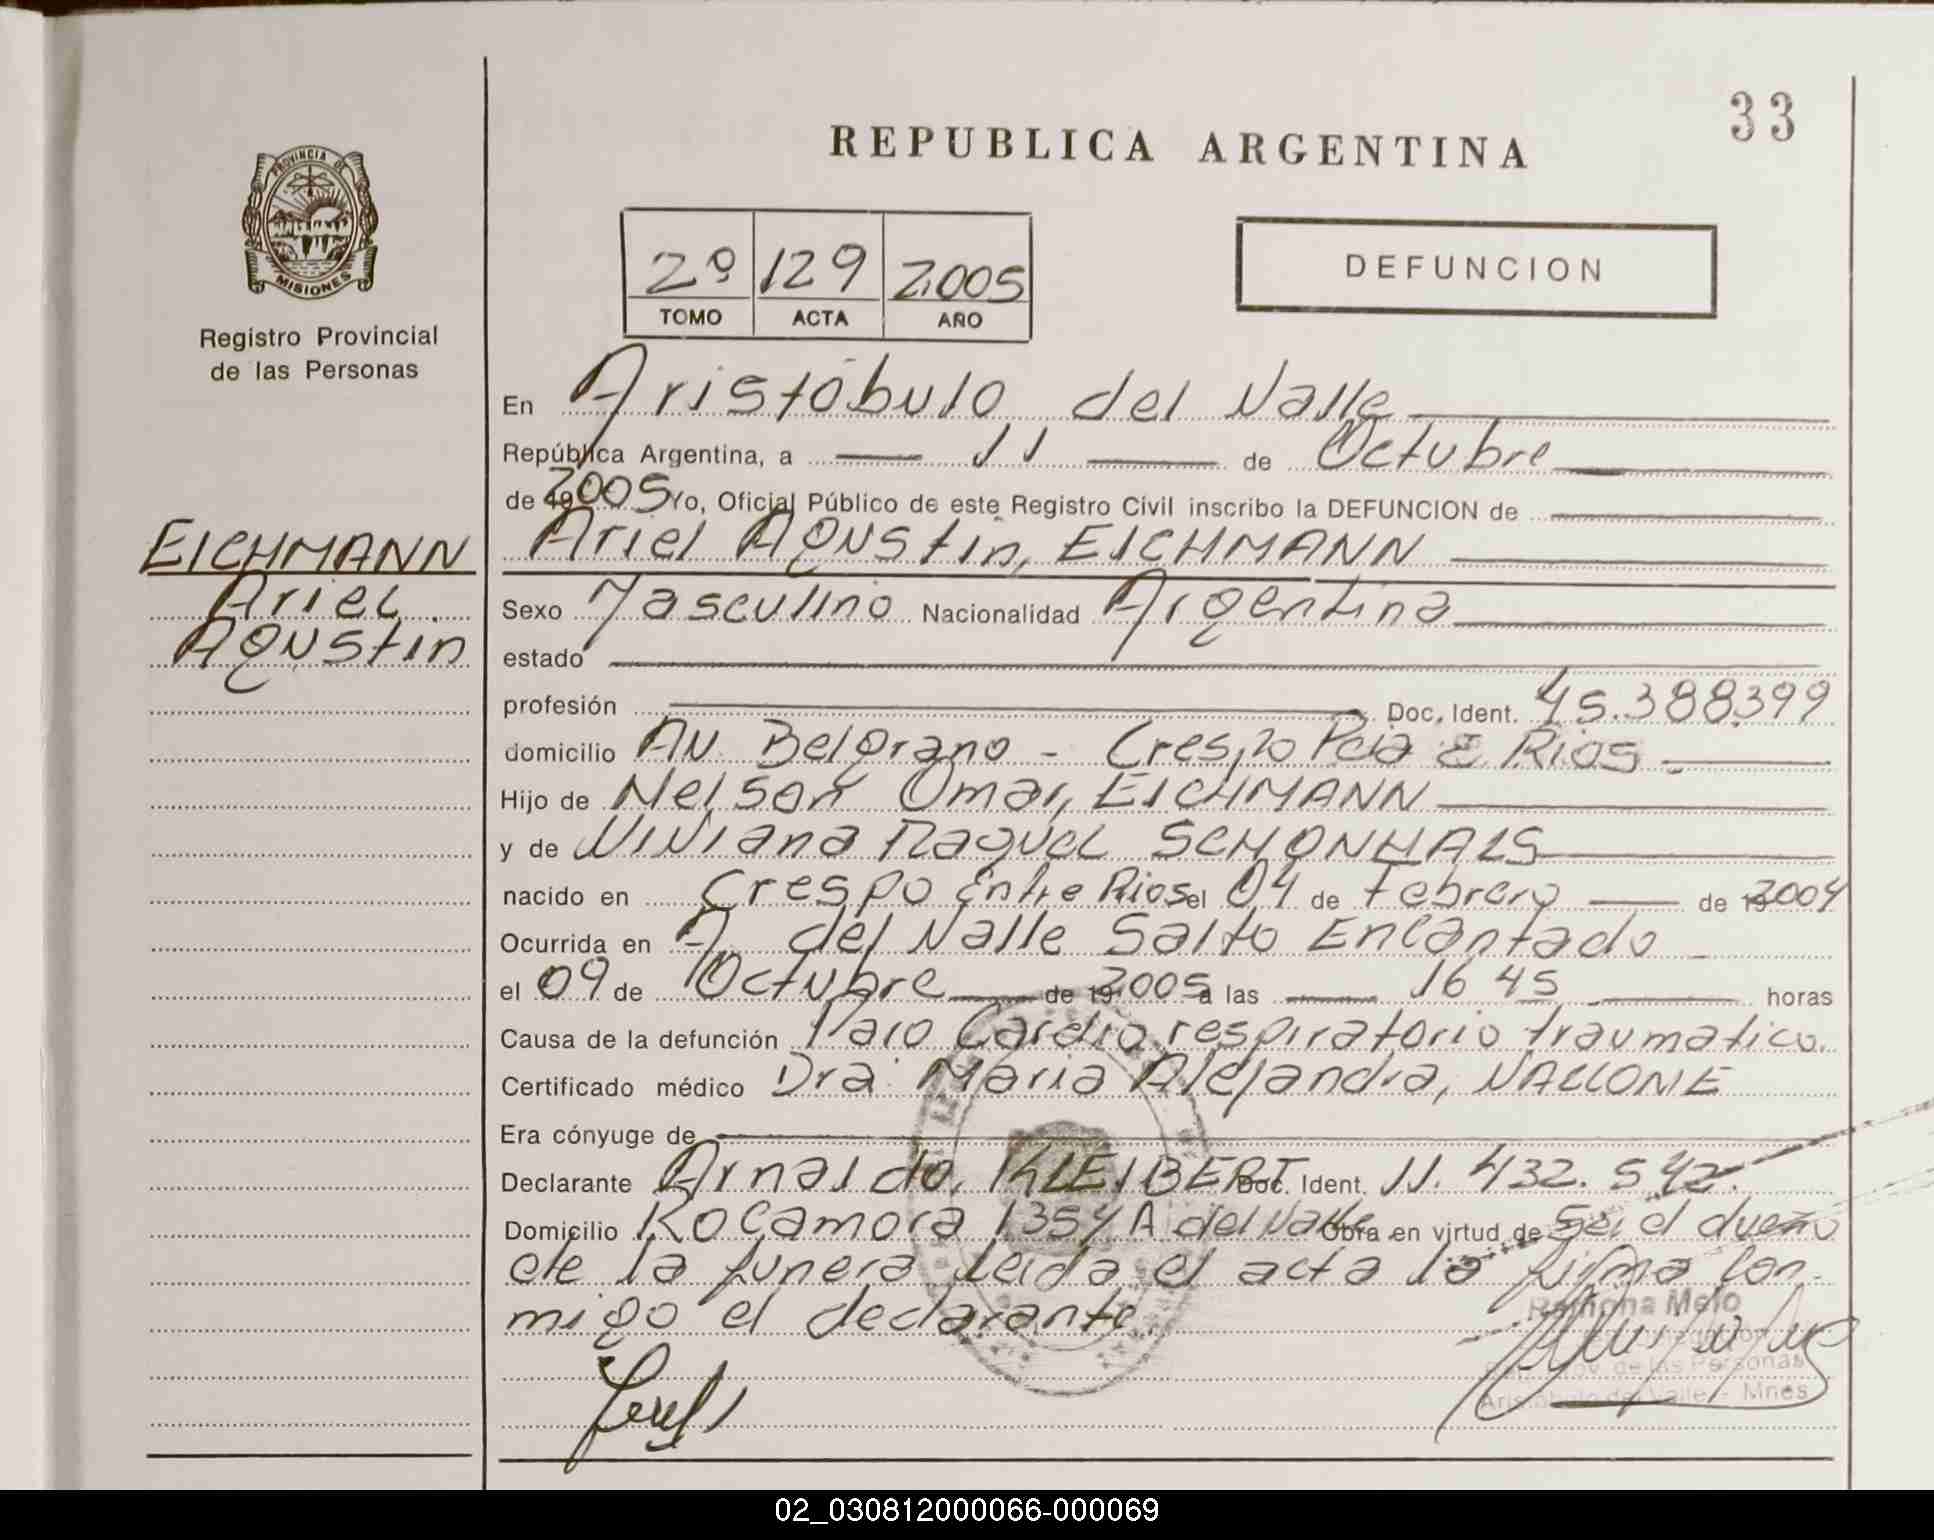 33
REPUBLICA ARGENTINA
PROVINCIA DE
MISIONES
Registro Provincial
de las Personas
2º 129 2005
TOMO ACTA AÑO
DEFUNCION
En Aristóbulo del Valle
República Argentina, a 11 de Octubre
de 2005 Yo, Oficial Público de este Registro Civil inscribo la DEFUNCION de
Ariel Agustin, EICHMANN
EICHMANN
Ariel
Agustin
Sexo Masculino Nacionalidad Argentina
estado
profesión Doc. Ident. 45.388.399
domicilio Av. Belgrano - Crespo Pcia E Rios
Hijo de Nelson Omar, EICHMANN
y de Viviana Raquel SCHONHALS
nacido en Crespo Entre Rios el 04 de Febrero de 2004
Ocurrida en A. del Valle Salto Encantado
el 09 de Octubre de 2005 a las 16 45 horas
Causa de la defunción Paro Cardio respiratorio traumatico.
Certificado médico Dra Maria Alejandra, VALLONE
Era cónyuge de
Declarante Arnaldo, KLEIBERT Doc. Ident. 11.432.542.
Domicilio Rocamora 1354 A del Valle Obra en virtud de Ser el dueño
de la funera leida el acta la firma con-
migo el declarante.
Ramona Melo
de las Personas
Aristóbulo del Valle - Mnes
02_030812000066-000069